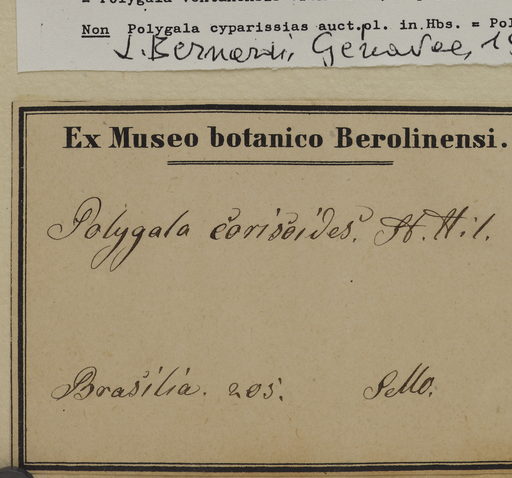 Non Polygala cyparissias auct.pl. in Hbs. = Pol
L. Bernardi, Genavae, 19
Ex Museo botanico Berolinensi.
Polygala corisoides. St. Hil.
Brasilia. 205. Sello.